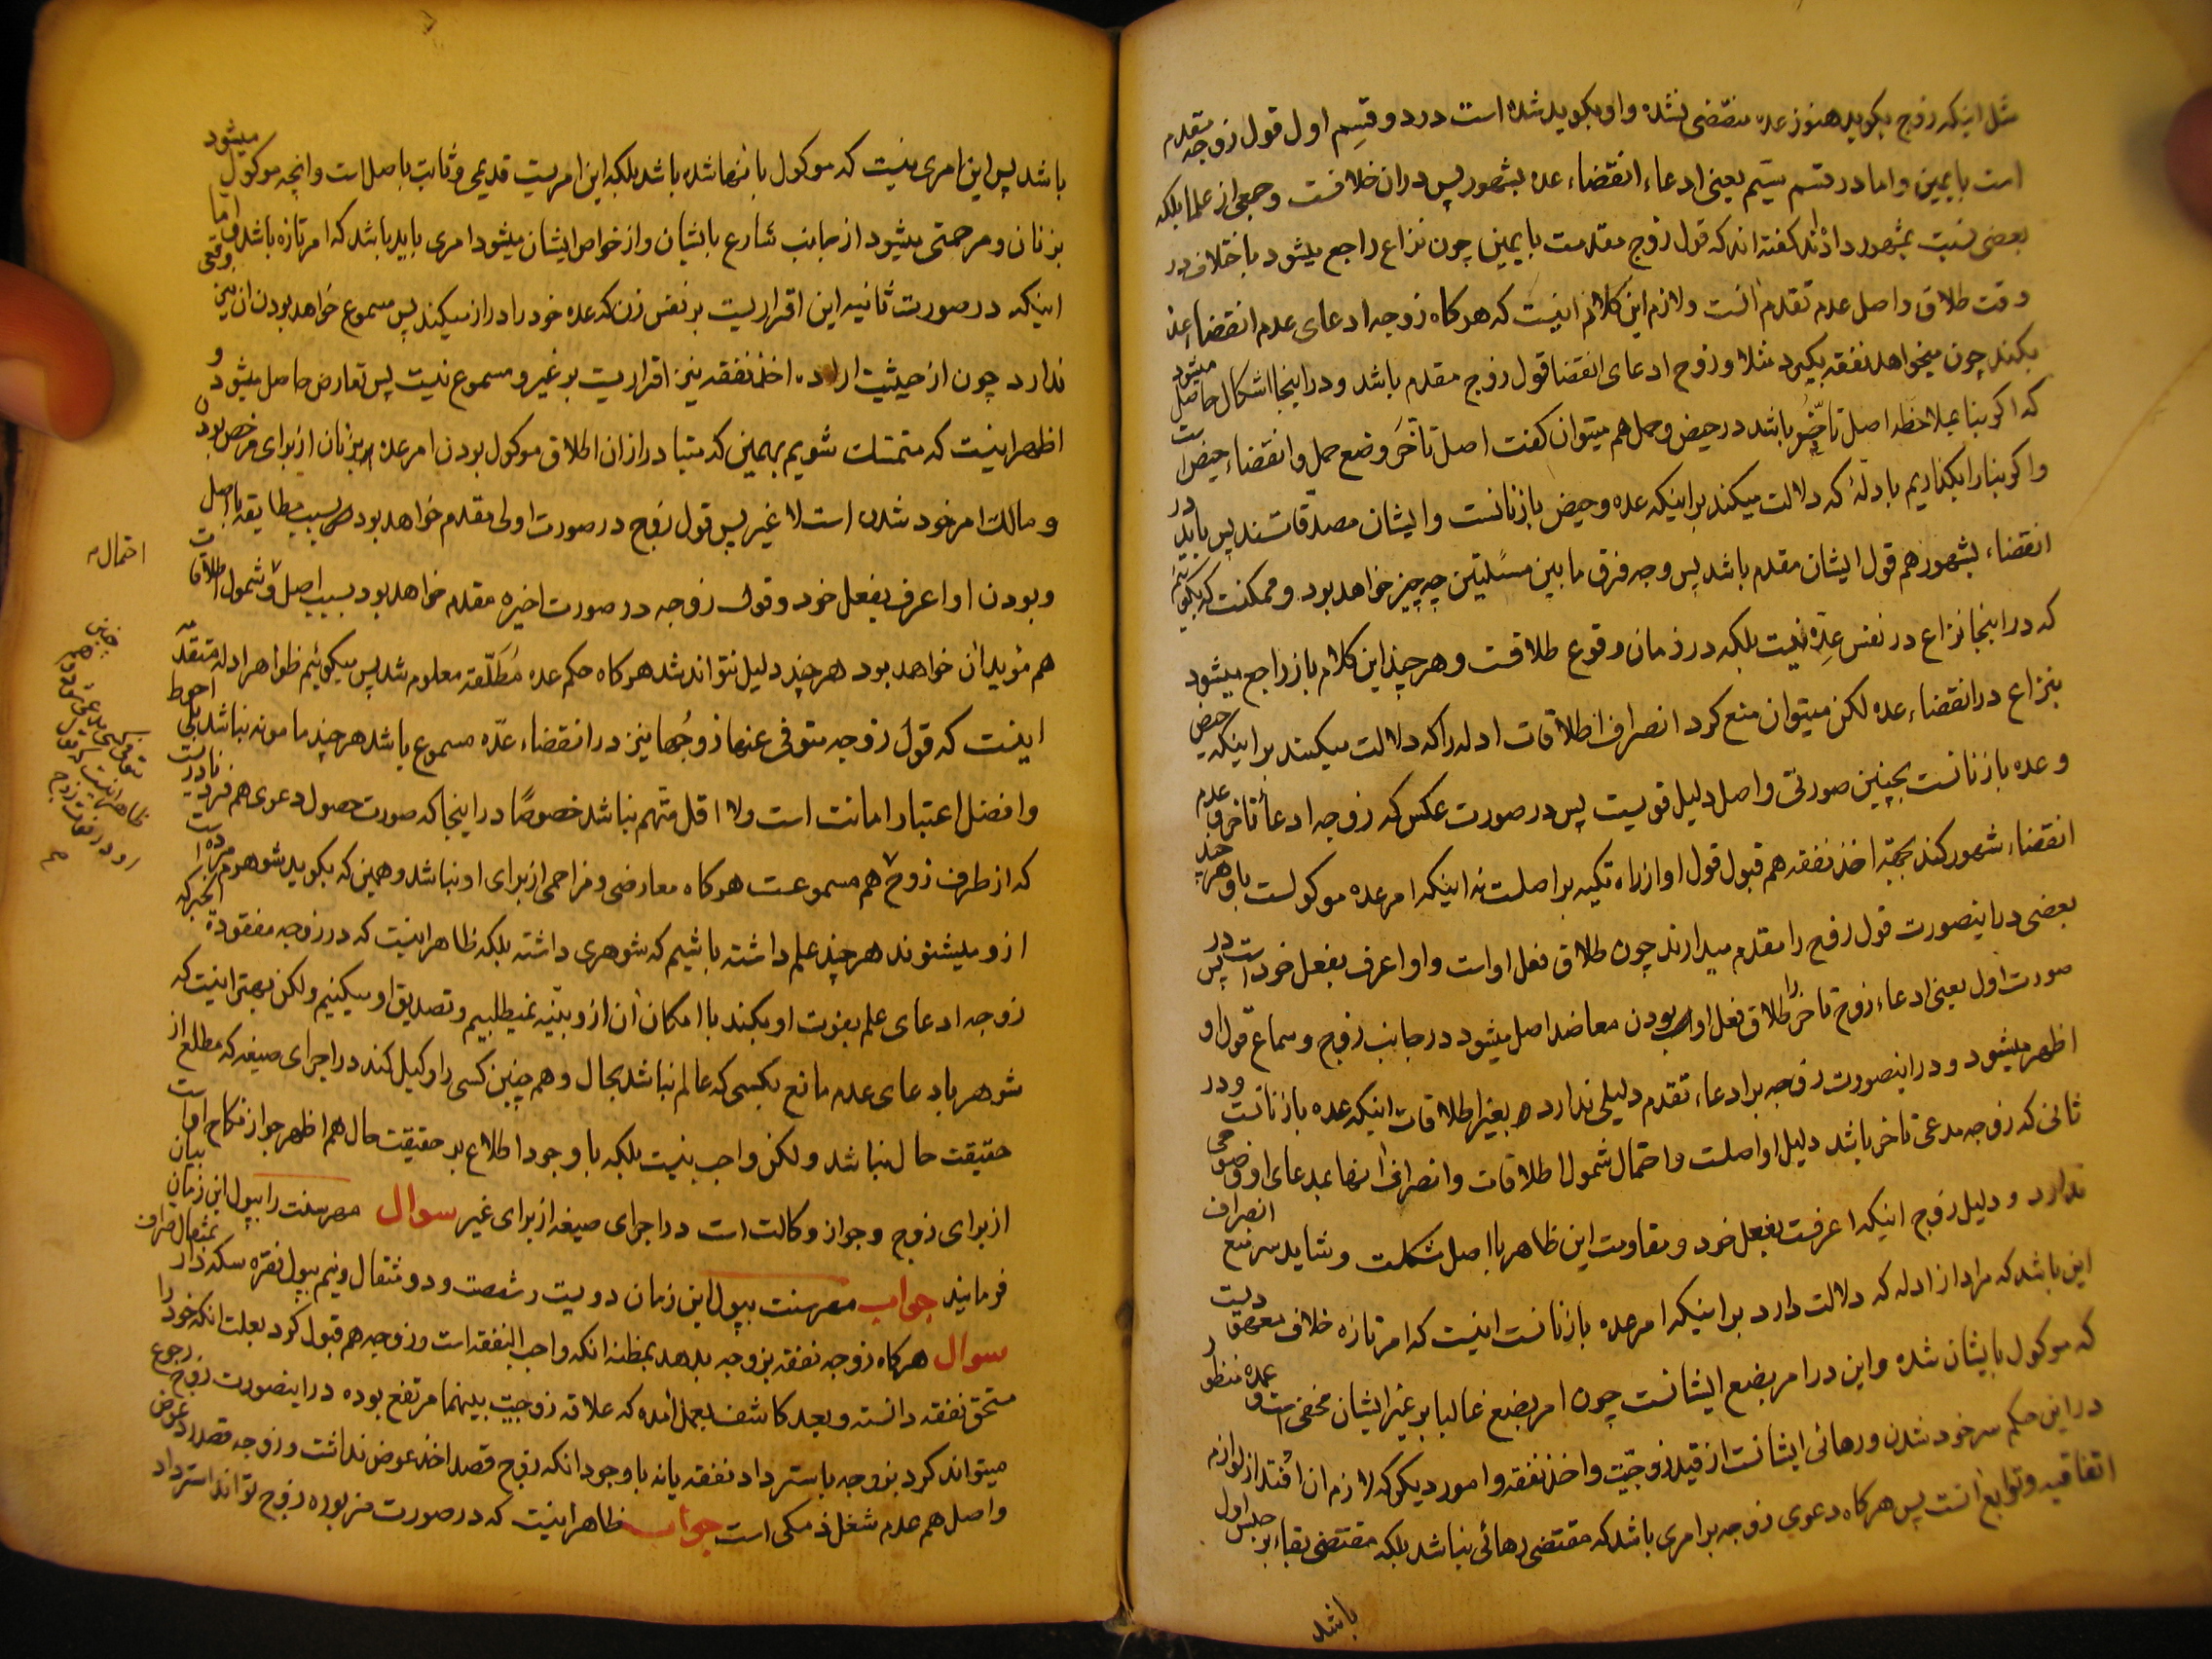 مثل اینکه زوج بکوید هنوز عده منقضی نشده و او بکوید شده است در دو قسم اول قول زوجه مقدم
است بایمین و اما در قسم سیم یعنی ادعاء انقضاء عده بشهور پس در ان خلافست و جمعی از علما بلکه
بعضی نسبت بمشهور داده‌اند کفته‌اند که قول زوج مقدمست بایمین چون نزاع راجع میشود باختلاف در
وقت طلاق و اصل عدم تقدم انست و لازم این کلام اینست که هرکاه زوجه ادعای عدم انقضاء عده
بکند چون میخواهد نفقه بکیرد مثلا و زوج ادعای انقضا قول زوج مقدم باشد و در اینجا اشکال حاصل میشود
که اکر بنا بملاحظه اصل تاخر باشد در حیض و حمل هم میتوان کفت اصل تاخر وضع حمل و انقضاء حیض است
و اکر بنا را بکذاریم بادلهٔ که دلالت میکند بر اینکه عده و حیض بازنانست و ایشان مصدقات‌ند پس باید در
انقضاء بشهور هم قول ایشان مقدم باشد پس وجه فرق ما بین مسئلتین چه چیز خواهد بود و ممکنست که بکوئیم
که در اینجا نزاع در نفس عده نیست بلکه در زمان وقوع طلاقست و هرچند این کلام باز راجع میشود
بنزاع در انقضاء عده لکن میتوان منع کرد انصراف اطلاقات ادله را که دلالت میکنند بر اینکه حیض
و عده بازنانست بچنین صورتی و اصل دلیل قویست پس در صورت عکس که زوجه ادعا تاخر و عدم
انقضاء شهور کند بجهة اخذ نفقه هم قبول قول او از راه تکیه بر اصلست نه اینکه امر عده موکولست باو هرچند
بعضی در اینصورت قول زوج را مقدم میدارند چون طلاق فعل او است و او اعرف بفعل خود است پس در
صورت اول یعنی ادعاء زوج تاخر را طلاق فعل او بودن معاضد اصل میشود در جانب زوج و سماع قول او
اظهر میشود و در اینصورت زوجه بر ادعاء تقدم دلیلی ندارد بغیر اطلاقات اینکه عده بازنانست و در
ثانی که زوجه مدعی تاخر باشد دلیل او اصلست و احتمال شمول اطلاقات و انصراف انها بمدعای او وضوحی
ندارد و دلیل زوج اینکه اعرفست بفعل خود و مقاومت این ظاهر با اصل مشکلست و شاید سر منع انصراف
این باشد که مراد از ادله که دلالت دارد بر اینکه امر عده بازنانست اینست که امر تازه خلاف معهود
که موکول بایشان شده و این در امر بضع ایشانست چون امر بضع غالبا بر غیر ایشان مخفی است و عمده منظور
در این حکم سر خود شدن و رهائی ایشانست از قید زوجیت و اخذ نفقه و امور دیکر که لازم ان افتد از لوازم
اتفاقیه و توابع انست پس هرکاه دعوی زوجه بر امری باشد که مقتضی رهائی نباشد بلکه مقتضی بقاء بر حبس اول
باشد
باشد پس این امری نیست که موکول بانها شده باشد بلکه این امریست قدیمی و ثابت باصل است و انچه موکول میشود
بزنان و مرحمتی میشود از جانب شارع بانشان و از خواص ایشان میشود امری باید باشد که امر تازه باشد
اینکه در صورت ثانیه این اقراریست بر نفس زن که عده خود را دراز میکند پس مسموع خواهد بود ان نیز
ندارد چون از حیثیت اراده اخذ نفقه نیز اقراریست بر غیر و مسموع نیست پس تعارض حاصل میشود و
اظهر اینست که متمسک شویم بهمین که متبادر از ان اطلاق موکول بودن امر عده بزنان از برای مرخص بودن
و مالک امر خود شدن است لا غیر پس قول زوج در صورت اولی مقدم خواهد بود بسبب مطابقه باصل
و بودن او اعرف بفعل خود و قول زوجه در صورت اخیره مقدم خواهد بود بسبب اصل و شمول اطلاقات
احتمال
هم مؤید ان خواهد بود هرچند دلیل نتواند شد هرکاه حکم عده مطلقه معلوم شد پس میکوئیم ظواهر ادله متقدمه
اینست که قول زوجه متوفی عنها زوجها نیز در انقضاء عده مسموع باشد هرچند مامونه نباشد بلی احوط
و افضل اعتبار امانت است ولا اقل متهم نباشد خصوصا در اینجا که صورت حصول دعوی هم فرد نادریست
که از طرف زوج هم مسموعست هرکاه معارضی و مزاحمی از برای او نباشد و همین که بکوید شوهرم مرده است
از و میشنوند هرچند علم داشته باشیم که شوهری داشته بلکه ظاهر اینست که در زوجه مفقودة الخبر که
زوجه ادعای علم بفوت او بکند با امکان ان از و بینه نمیطلبیم و تصدیق او میکنیم و لکن بهتر اینست که
شوهر بادعای عدم مانع بکسی که عالم نباشد بحال و همچنین کسی را وکیل کند در اجرای صیغه که مطلع از
حقیقت حال نباشد و لکن واجب نیست بلکه با وجود اطلاع بر حقیقت حال هم اظهر جواز نکاح او است
از برای زوج و جواز وکالت است در اجرای صیغه از برای غیر سوال مهر سنت را بپول این زمان بیان
فرمایند جواب مهر سنت بپول این زمان دویست و شصت و دو مثقال و نیم بپول نقره سکه دار بمثقال صراف
سوال هرکاه زوجه نفقه بزوجه بدهد بمظنه انکه واجب النفقه است و زوجه هم قبول کرد بعلت انکه خود را
مستحق نفقه دانسته و بعد کاشف بعمل امده که علاقه زوجیت بینهما مرتفع بوده در اینصورت زوج رجوع
میتواند کرد بزوجه باسترداد نفقه یا نه با وجود انکه زوج قصد اخذ عوض نداشت و زوجه قصد رد عوض
و اصل هم عدم شغل ذمکی است جواب ظاهر اینست که در صورت مزبوره زوج تواند استرداد